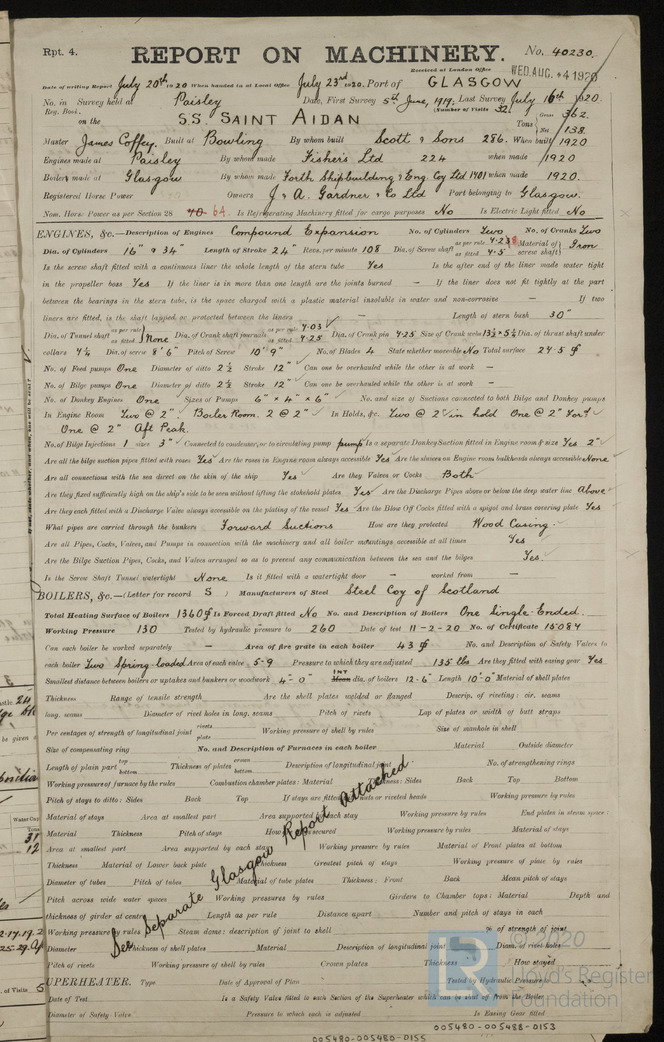 Rpt. 4.
REPORT ON MACHINERY.
No. 40230.
Received at London Office WED. AUG. 4 1920
Date of writing Report July 20th 1920 When handed in at Local Office July 23rd 1920 Port of GLASGOW
No. in Survey held at Paisley Date, First Survey 5th June, 1919. Last Survey July 16th 1920
Reg. Book. (Number of Visits 32.)
on the SS. SAINT AIDAN Tons Gross 362. Net 138.
Master James Coffey. Built at Bowling By whom built Scott & Sons 286. When built 1920
Engines made at Paisley By whom made Fisher's Ltd 224 when made 1920
Boilers made at Glasgow By whom made Forth Shipbuilding & Eng. Coy Ltd 1401 when made 1920.
Registered Horse Power Owners J. & A. Gardner & Co Ltd Port belonging to Glasgow.
Nom. Horse Power as per Section 28 70 64. Is Refrigerating Machinery fitted for cargo purposes No Is Electric Light fitted No
ENGINES, &c.—Description of Engines Compound Expansion No. of Cylinders Two No. of Cranks Two
Dia. of Cylinders 16" & 34" Length of Stroke 24" Revs. per minute 108 Dia. of Screw shaft as per rule 4.23 as fitted 4.5 Material of screw shaft Iron
Is the screw shaft fitted with a continuous liner the whole length of the stern tube Yes Is the after end of the liner made water tight
in the propeller boss Yes If the liner is in more than one length are the joints burned — If the liner does not fit tightly at the part
between the bearings in the stern tube, is the space charged with a plastic material insoluble in water and non-corrosive — If two
liners are fitted, is the shaft lapped or protected between the liners — Length of stern bush 30"
Dia. of Tunnel shaft as per rule as fitted None Dia. of Crank shaft journals as per rule 4.03 as fitted 4.25 Dia. of Crank pin 4.25 Size of Crank webs 13½ x 5¼ Dia. of thrust shaft under
collars 4¼ Dia. of screw 8' 6" Pitch of Screw 10' 9" No. of Blades 4 State whether moveable No Total surface 24.5 ф
No. of Feed pumps One Diameter of ditto 2½ Stroke 12" Can one be overhauled while the other is at work —
No. of Bilge pumps One Diameter of ditto 2½ Stroke 12" Can one be overhauled while the other is at work —
No. of Donkey Engines One Sizes of Pumps 6" x 4" x 6" No. and size of Suctions connected to both Bilge and Donkey pumps
In Engine Room Two @ 2". Boiler Room. 2 @ 2" In Holds, &c. Two @ 2" in hold One @ 2" For'd
One @ 2" Aft Peak.
No. of Bilge Injections 1 sizes 3" Connected to condenser, or to circulating pump pump Is a separate Donkey Suction fitted in Engine room & size Yes 2"
Are all the bilge suction pipes fitted with roses Yes Are the roses in Engine room always accessible Yes Are the sluices on Engine room bulkheads always accessible None
Are all connections with the sea direct on the skin of the ship Yes Are they Valves or Cocks Both
Are they fixed sufficiently high on the ship's side to be seen without lifting the stokehold plates Yes Are the Discharge Pipes above or below the deep water line Above
Are they each fitted with a Discharge Valve always accessible on the plating of the vessel Yes Are the Blow Off Cocks fitted with a spigot and brass covering plate Yes
What pipes are carried through the bunkers Forward Suctions How are they protected Wood Casing.
Are all Pipes, Cocks, Valves, and Pumps in connection with the machinery and all boiler mountings accessible at all times Yes
Are the Bilge Suction Pipes, Cocks, and Valves arranged so as to prevent any communication between the sea and the bilges Yes.
Is the Screw Shaft Tunnel watertight None Is it fitted with a watertight door — worked from —
BOILERS, &c.—(Letter for record S ) Manufacturers of Steel Steel Coy of Scotland
Total Heating Surface of Boilers 1360 ф Is Forced Draft fitted No No. and Description of Boilers One Single-Ended.
Working Pressure 130 Tested by hydraulic pressure to 260 Date of test 11-2-20 No. of Certificate 15084
Can each boiler be worked separately — Area of fire grate in each boiler 43 ф No. and Description of Safety Valves to
each boiler Two Spring-loaded Area of each valve 5.9 Pressure to which they are adjusted 135 lbs Are they fitted with easing gear Yes
Smallest distance between boilers or uptakes and bunkers or woodwork 4'-0" INT Mean dia. of boilers 12'-6" Length 10'-0" Material of shell plates
Thickness Range of tensile strength Are the shell plates welded or flanged Descrip. of riveting: cir. seams
long. seams Diameter of rivet holes in long. seams Pitch of rivets Lap of plates or width of butt straps
Per centages of strength of longitudinal joint rivets plate Working pressure of shell by rules Size of manhole in shell
Size of compensating ring No. and Description of Furnaces in each boiler Material Outside diameter
Length of plain part top bottom Thickness of plates crown bottom Description of longitudinal joint No. of strengthening rings
Working pressure of furnace by the rules Combustion chamber plates: Material Thickness: Sides Back Top Bottom
Pitch of stays to ditto: Sides Back Top If stays are fitted with nuts or riveted heads Working pressure by rules
Material of stays Area at smallest part Area supported by each stay Working pressure by rules End plates in steam space:
Material Thickness Pitch of stays How are stays secured Working pressure by rules Material of stays
Area at smallest part Area supported by each stay Working pressure by rules Material of Front plates at bottom
Thickness Material of Lower back plate Thickness Greatest pitch of stays Working pressure of plate by rules
Diameter of tubes Pitch of tubes Material of tube plates Thickness: Front Back Mean pitch of stays
Pitch across wide water spaces Working pressures by rules Girders to Chamber tops: Material Depth and
thickness of girder at centre Length as per rule Distance apart Number and pitch of stays in each
Working pressure by rules Steam dome: description of joint to shell % of strength of joint
Diameter Thickness of shell plates Material Description of longitudinal joint Diam. of rivet holes
Pitch of rivets Working pressure of shell by rules Crown plates Thickness How stayed
See Separate Glasgow Report Attached
SUPERHEATER. Type Date of Approval of Plan Tested by Hydraulic Pressure to
Date of Test Is a Safety Valve fitted to each Section of the Superheater which can be shut off from the Boiler
Diameter of Safety Valve Pressure to which each is adjusted Is Easing Gear fitted
© 2020
Lloyd's Register
Foundation
005480-005488-0153
005480-005480-0155